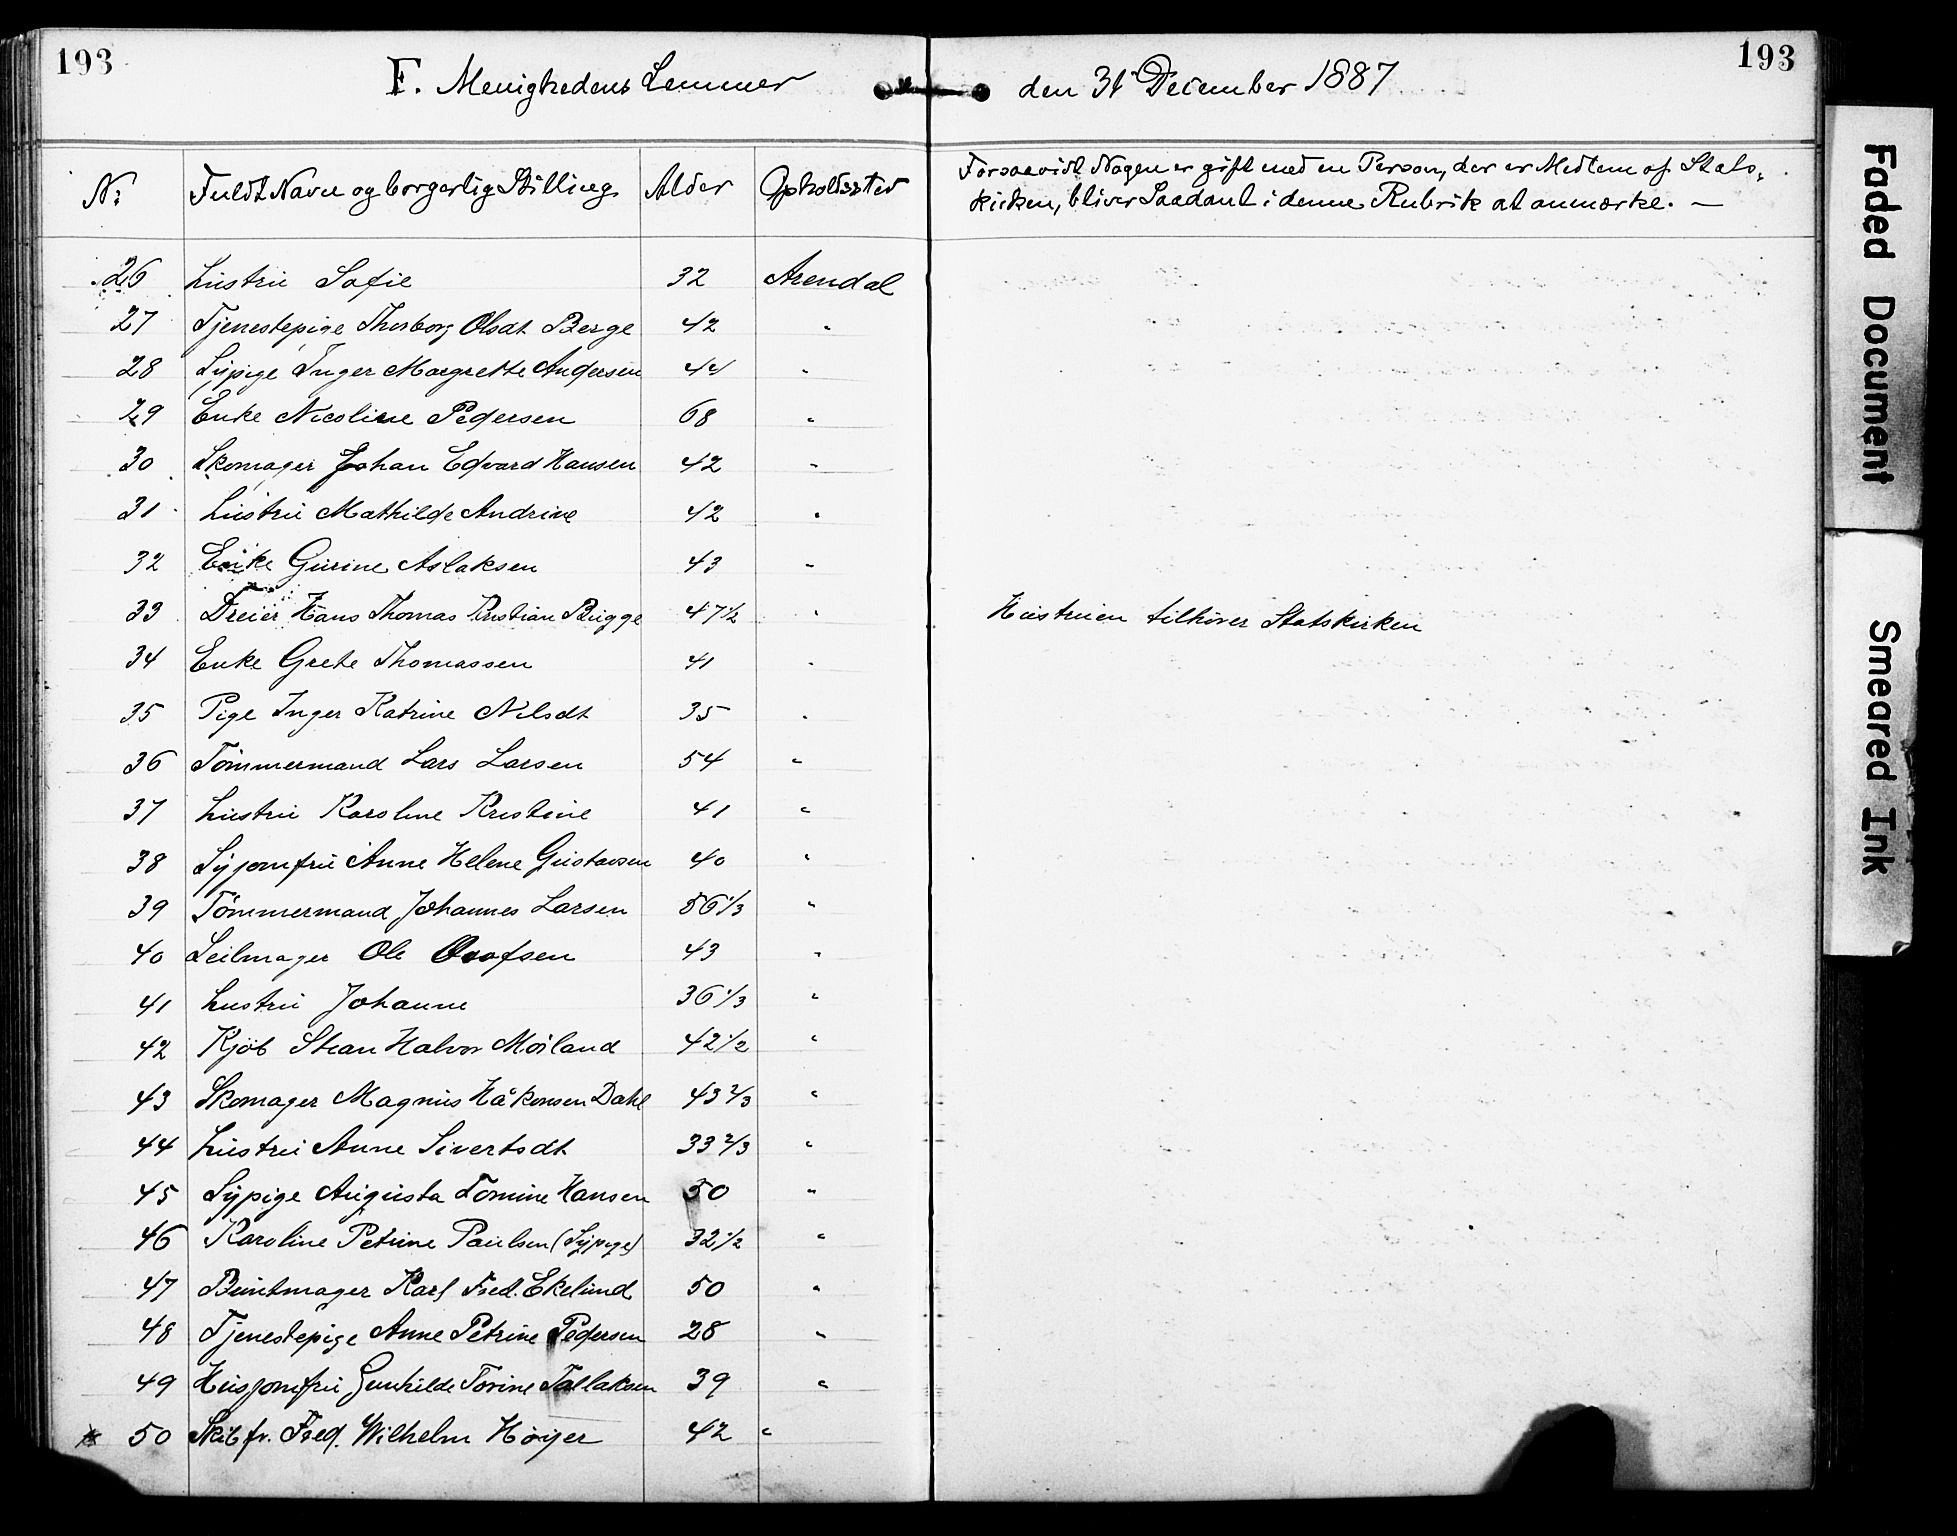 193
193
F. Menighedens Lemmer den 31 December 1887
Nr Fuldt Navn og borgerlig Stilling Alder Opholdssted Forsaavidt Nogen er gift med en Person, der er Medlem af Stats-
kirken, bliver Saadant i denne Rubrik at anmærke. —
26 hustru Sofie 32 Arendal
27 Tjenestepige Thorborg Olsdt Berge 42 "
28 Sypige Inger Margrethe Andersen 44 "
29 Enke Nicoline Pedersen 68 "
30 Skomager Johan Edvard Hansen 42 "
31 hustru Mathilde Andrine 42 "
32 Enke Gurine Aslaksen 43 "
33 Dreier Hans Thomas Kristian Brigge 47 1/2 " Hustruen tilhører Statskirken
34 Enke Grete Thomassen 41 "
35 Pige Inger Katrine Nilsdt 35 "
36 Tömmermand Lars Larsen 54 "
37 hustru Karoline Kristine 41 "
38 Syjomfru Anne Helene Gustavsen 40 "
39 Tömmermand Johannes Larsen 56 1/3 "
40 Seilmager Ole Olofsen 43 "
41 hustru Johanne 36 1/3 "
42 Kjöb Stian Halvor Möiland 42 1/2 "
43 Skomager Magnus Håkonsen Dahl 43 2/3 "
44 hustru Anne Sivertsdt 33 2/3 "
45 Sypige Augusta Tomine Hansen 50 "
46 Karoline Petrine Paulsen (Sypige) 32 1/2 "
47 Buntmager Karl Fred. Ekelund 50 "
48 Tjenestepige Anne Petrine Pedersen 28 "
49 Husjomfru Gunhilde Torine Tallaksen 39 "
50 Skibfr. Fred. Wilhelm Höyer 42 "
Faded Document
Smeared Ink